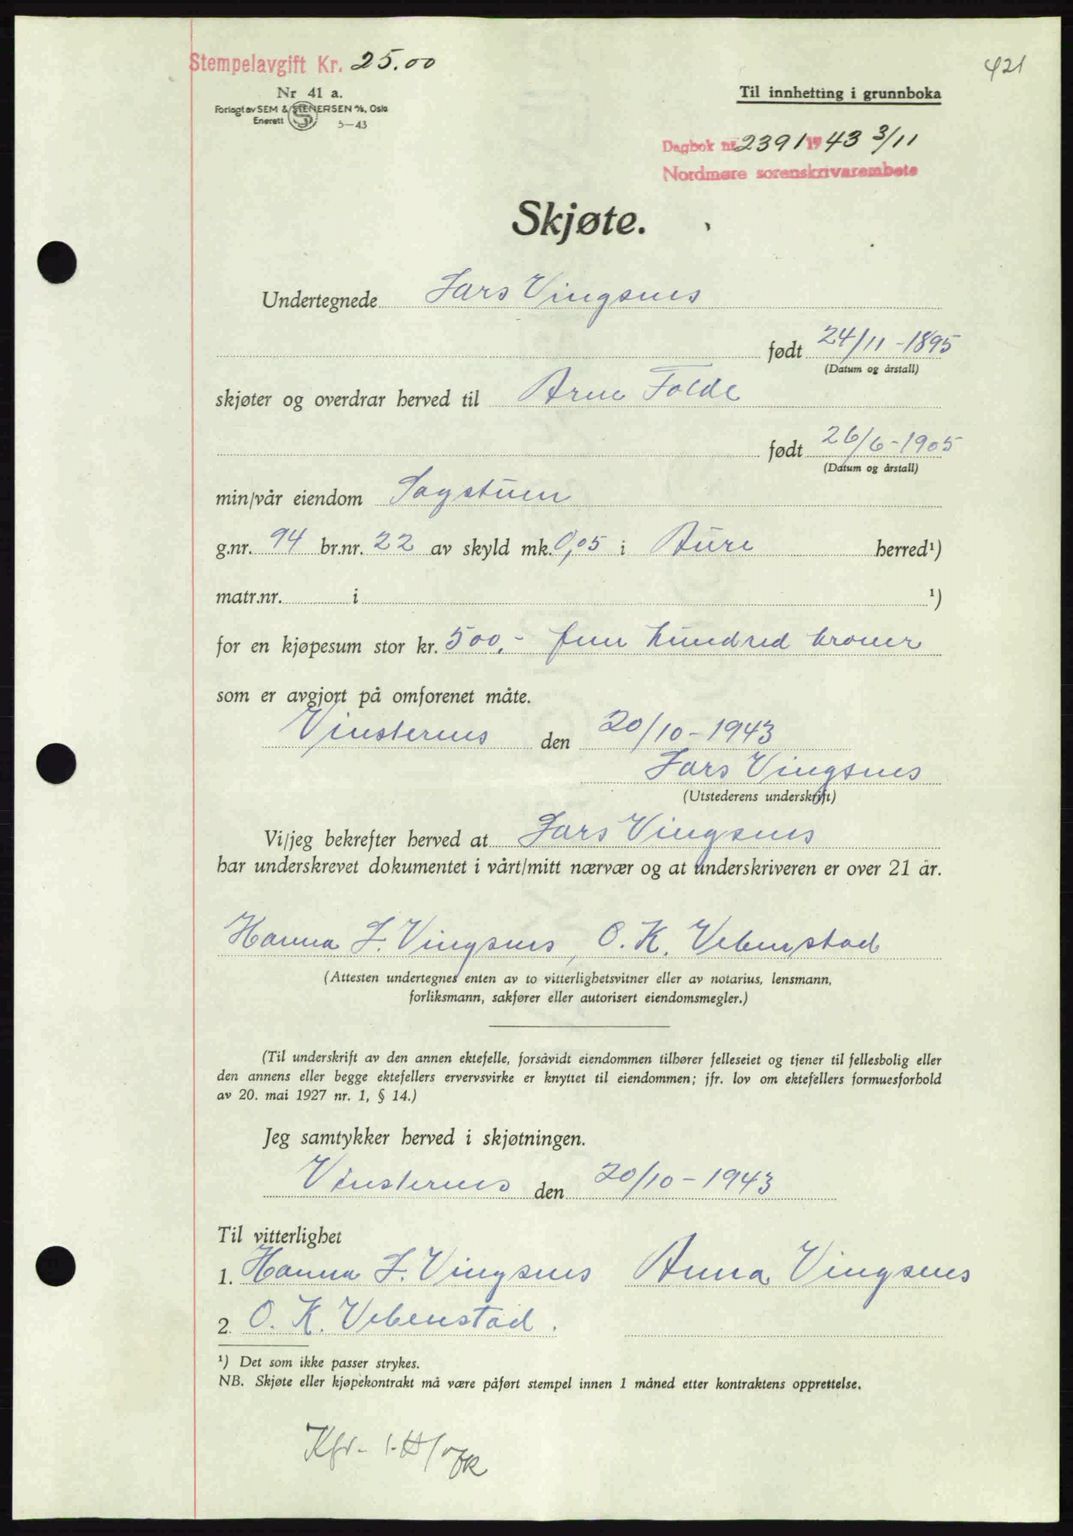 Stempelavgift Kr. 25.00
421
Nr 41 a.
Forlagt av SEM & STENERSEN A/S, Oslo
Enerett 5—43
Til innhefting i grunnboka
Dagbok nr. 2391 1943 3/11
Nordmøre sorenskrivarembete
Skjøte.
Undertegnede Lars Vingsnes
født 24/11 - 1895
(Datum og årstall)
skjøter og overdrar herved til Arne Folde
født 26/6 - 1905
(Datum og årstall)
min/vår eiendom Sagstuen
g.nr. 94 br.nr. 22 av skyld mk. 0,05 i Aure herred¹)
matr.nr. i ¹)
for en kjøpesum stor kr. 500,- fem hundred kroner
som er avgjort på omforenet måte.
Vinsternes den 20/10 - 1943
Lars Vingsnes
(Utstederens underskrift)
Vi/jeg bekrefter herved at Lars Vingsnes
har underskrevet dokumentet i vårt/mitt nærvær og at underskriveren er over 21 år.
Hanna L. Vingsnes, O. K. Vebenstad
(Attesten undertegnes enten av to vitterlighetsvitner eller av notarius, lensmann,
forliksmann, sakfører eller autorisert eiendomsmegler.)
(Til underskrift av den annen ektefelle, forsåvidt eiendommen tilhører felleseiet og tjener til fellesbolig eller
den annens eller begge ektefellers ervervsvirke er knyttet til eiendommen; jfr. lov om ektefellers formuesforhold
av 20. mai 1927 nr. 1, § 14.)
Jeg samtykker herved i skjøtningen.
Vinsternes den 20/10 - 1943
Til vitterlighet
1. Hanna L. Vingsnes Anna Vingsnes
2. O. K. Vebenstad.
¹) Det som ikke passer strykes.
NB. Skjøte eller kjøpekontrakt må være påført stempel innen 1 måned etter kontraktens opprettelse.